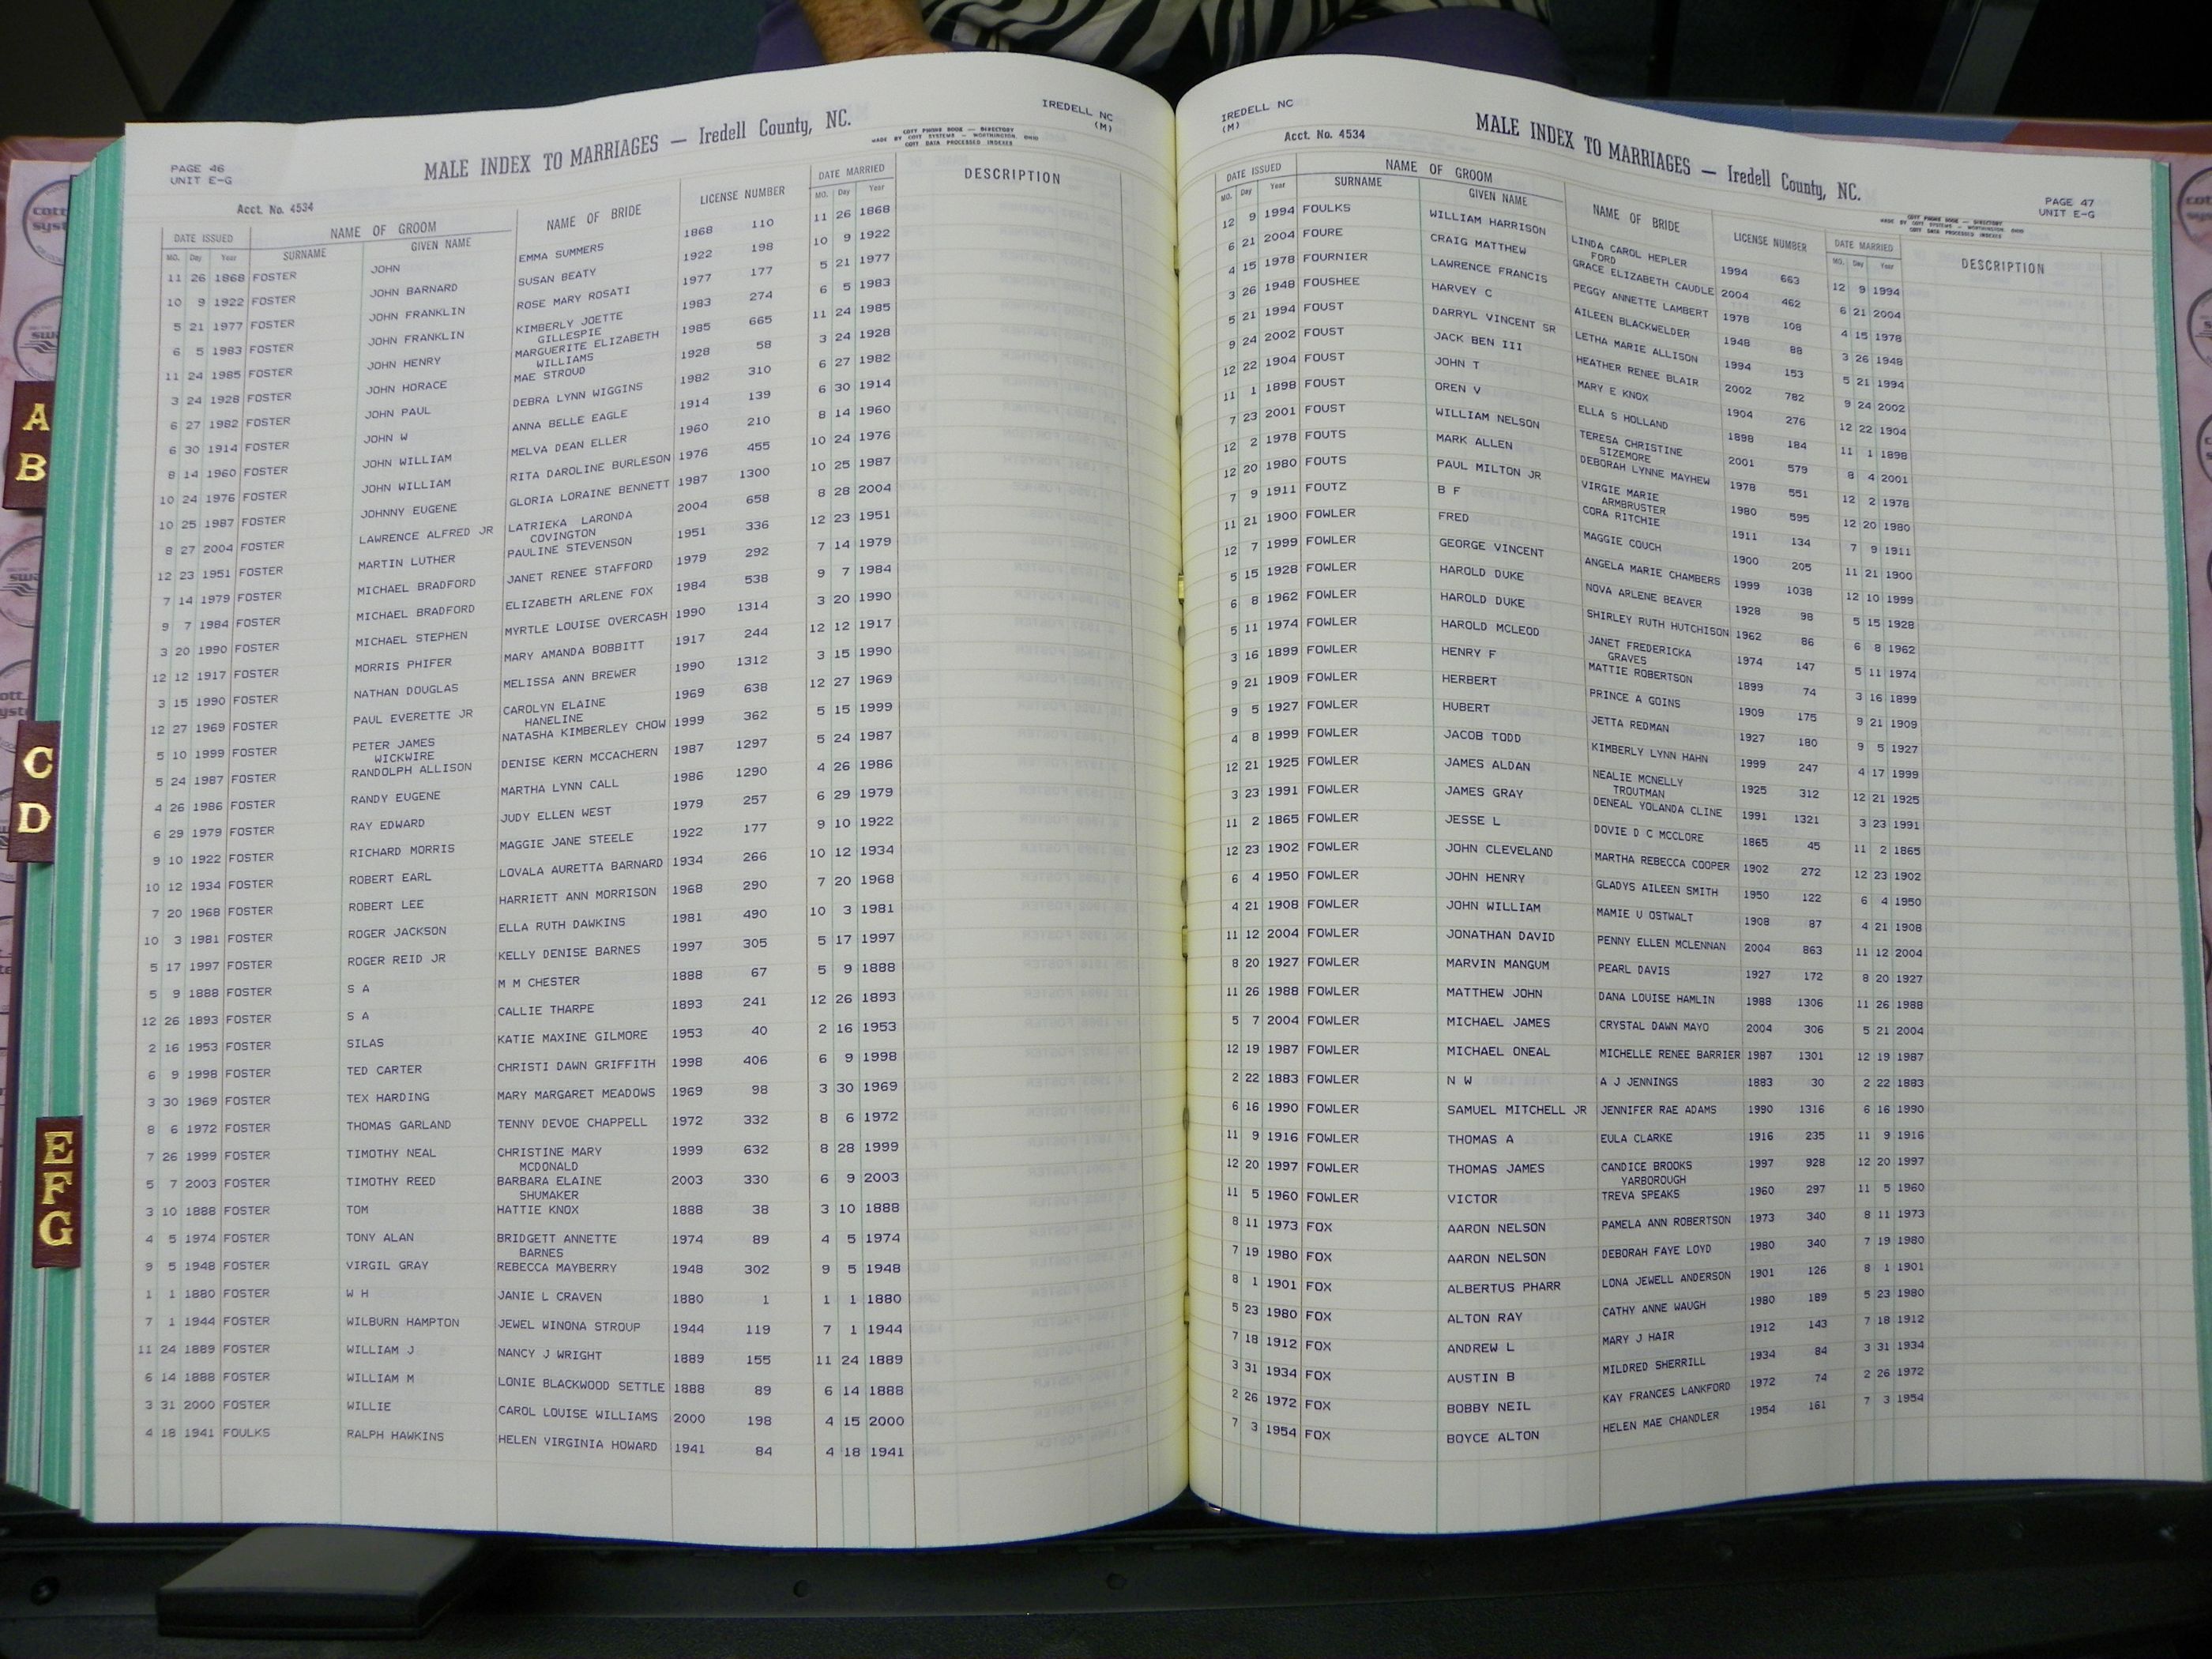 PAGE 46
UNIT E-G
Acct. No. 4534
MALE INDEX TO MARRIAGES — Iredell County, NC.
COTT PHONE BOOK — DIRECTORY
MADE BY COTT SYSTEMS — WORTHINGTON, OHIO
COTT DATA PROCESSED INDEXES
IREDELL NC
(M)
DATE ISSUED NAME OF GROOM NAME OF BRIDE LICENSE NUMBER DATE MARRIED DESCRIPTION
MO. Day Year SURNAME GIVEN NAME MO. Day Year
11 26 1868 FOSTER JOHN EMMA SUMMERS 1868 110 11 26 1868
10 9 1922 FOSTER JOHN BARNARD SUSAN BEATY 1922 198 10 9 1922
5 21 1977 FOSTER JOHN FRANKLIN ROSE MARY ROSATI 1977 177 5 21 1977
6 5 1983 FOSTER JOHN FRANKLIN KIMBERLY JOETTE 1983 274 6 5 1983
GILLESPIE
11 24 1985 FOSTER JOHN HENRY MARGUERITE ELIZABETH 1985 665 11 24 1985
WILLIAMS
3 24 1928 FOSTER JOHN HORACE MAE STROUD 1928 58 3 24 1928
6 27 1982 FOSTER JOHN PAUL DEBRA LYNN WIGGINS 1982 310 6 27 1982
6 30 1914 FOSTER JOHN W ANNA BELLE EAGLE 1914 139 6 30 1914
8 14 1960 FOSTER JOHN WILLIAM MELVA DEAN ELLER 1960 210 8 14 1960
10 24 1976 FOSTER JOHN WILLIAM RITA DAROLINE BURLESON 1976 455 10 24 1976
10 25 1987 FOSTER JOHNNY EUGENE GLORIA LORAINE BENNETT 1987 1300 10 25 1987
8 27 2004 FOSTER LAWRENCE ALFRED JR LATRIEKA LARONDA 2004 658 8 28 2004
COVINGTON
12 23 1951 FOSTER MARTIN LUTHER PAULINE STEVENSON 1951 336 12 23 1951
7 14 1979 FOSTER MICHAEL BRADFORD JANET RENEE STAFFORD 1979 292 7 14 1979
9 7 1984 FOSTER MICHAEL BRADFORD ELIZABETH ARLENE FOX 1984 538 9 7 1984
3 20 1990 FOSTER MICHAEL STEPHEN MYRTLE LOUISE OVERCASH 1990 1314 3 20 1990
12 12 1917 FOSTER MORRIS PHIFER MARY AMANDA BOBBITT 1917 244 12 12 1917
3 15 1990 FOSTER NATHAN DOUGLAS MELISSA ANN BREWER 1990 1312 3 15 1990
12 27 1969 FOSTER PAUL EVERETTE JR CAROLYN ELAINE 1969 638 12 27 1969
HANELINE
5 10 1999 FOSTER PETER JAMES NATASHA KIMBERLEY CHOW 1999 362 5 15 1999
WICKWIRE
5 24 1987 FOSTER RANDOLPH ALLISON DENISE KERN MCCACHERN 1987 1297 5 24 1987
4 26 1986 FOSTER RANDY EUGENE MARTHA LYNN CALL 1986 1290 4 26 1986
6 29 1979 FOSTER RAY EDWARD JUDY ELLEN WEST 1979 257 6 29 1979
9 10 1922 FOSTER RICHARD MORRIS MAGGIE JANE STEELE 1922 177 9 10 1922
10 12 1934 FOSTER ROBERT EARL LOVALA AURETTA BARNARD 1934 266 10 12 1934
7 20 1968 FOSTER ROBERT LEE HARRIETT ANN MORRISON 1968 290 7 20 1968
10 3 1981 FOSTER ROGER JACKSON ELLA RUTH DAWKINS 1981 490 10 3 1981
5 17 1997 FOSTER ROGER REID JR KELLY DENISE BARNES 1997 305 5 17 1997
5 9 1888 FOSTER S A M M CHESTER 1888 67 5 9 1888
12 26 1893 FOSTER S A CALLIE THARPE 1893 241 12 26 1893
2 16 1953 FOSTER SILAS KATIE MAXINE GILMORE 1953 40 2 16 1953
6 9 1998 FOSTER TED CARTER CHRISTI DAWN GRIFFITH 1998 406 6 9 1998
3 30 1969 FOSTER TEX HARDING MARY MARGARET MEADOWS 1969 98 3 30 1969
8 6 1972 FOSTER THOMAS GARLAND TENNY DEVOE CHAPPELL 1972 332 8 6 1972
7 26 1999 FOSTER TIMOTHY NEAL CHRISTINE MARY 1999 632 8 28 1999
MCDONALD
5 7 2003 FOSTER TIMOTHY REED BARBARA ELAINE 2003 330 6 9 2003
SHUMAKER
3 10 1888 FOSTER TOM HATTIE KNOX 1888 38 3 10 1888
4 5 1974 FOSTER TONY ALAN BRIDGETT ANNETTE 1974 89 4 5 1974
BARNES
9 5 1948 FOSTER VIRGIL GRAY REBECCA MAYBERRY 1948 302 9 5 1948
1 1 1880 FOSTER W H JANIE L CRAVEN 1880 1 1 1 1880
7 1 1944 FOSTER WILBURN HAMPTON JEWEL WINONA STROUP 1944 119 7 1 1944
11 24 1889 FOSTER WILLIAM J NANCY J WRIGHT 1889 155 11 24 1889
6 14 1888 FOSTER WILLIAM M LONIE BLACKWOOD SETTLE 1888 89 6 14 1888
3 31 2000 FOSTER WILLIE CAROL LOUISE WILLIAMS 2000 198 4 15 2000
4 18 1941 FOULKS RALPH HAWKINS HELEN VIRGINIA HOWARD 1941 84 4 18 1941
IREDELL NC
(M)
Acct. No. 4534
MALE INDEX TO MARRIAGES — Iredell County, NC.
COTT PHONE BOOK — DIRECTORY
MADE BY COTT SYSTEMS — WORTHINGTON, OHIO
COTT DATA PROCESSED INDEXES
PAGE 47
UNIT E-G
DATE ISSUED NAME OF GROOM NAME OF BRIDE LICENSE NUMBER DATE MARRIED DESCRIPTION
MO. Day Year SURNAME GIVEN NAME MO. Day Year
12 9 1994 FOULKS WILLIAM HARRISON LINDA CAROL HEPLER 1994 663 12 9 1994
FORD
6 21 2004 FOURE CRAIG MATTHEW GRACE ELIZABETH CAUDLE 2004 462 6 21 2004
4 15 1978 FOURNIER LAWRENCE FRANCIS PEGGY ANNETTE LAMBERT 1978 108 4 15 1978
3 26 1948 FOUSHEE HARVEY C AILEEN BLACKWELDER 1948 88 3 26 1948
5 21 1994 FOUST DARRYL VINCENT SR LETHA MARIE ALLISON 1994 153 5 21 1994
9 24 2002 FOUST JACK BEN III HEATHER RENEE BLAIR 2002 782 9 24 2002
12 22 1904 FOUST JOHN T MARY E KNOX 1904 276 12 22 1904
11 1 1898 FOUST OREN V ELLA S HOLLAND 1898 184 11 1 1898
7 23 2001 FOUST WILLIAM NELSON TERESA CHRISTINE 2001 579 8 4 2001
SIZEMORE
12 2 1978 FOUTS MARK ALLEN DEBORAH LYNNE MAYHEW 1978 551 12 2 1978
12 20 1980 FOUTS PAUL MILTON JR VIRGIE MARIE 1980 595 12 20 1980
ARMBRUSTER
7 9 1911 FOUTZ B F CORA RITCHIE 1911 134 7 9 1911
11 21 1900 FOWLER FRED MAGGIE COUCH 1900 205 11 21 1900
12 7 1999 FOWLER GEORGE VINCENT ANGELA MARIE CHAMBERS 1999 1038 12 10 1999
5 15 1928 FOWLER HAROLD DUKE NOVA ARLENE BEAVER 1928 98 5 15 1928
6 8 1962 FOWLER HAROLD DUKE SHIRLEY RUTH HUTCHISON 1962 86 6 8 1962
5 11 1974 FOWLER HAROLD MCLEOD JANET FREDERICKA 1974 147 5 11 1974
GRAVES
3 16 1899 FOWLER HENRY F MATTIE ROBERTSON 1899 74 3 16 1899
9 21 1909 FOWLER HERBERT PRINCE A GOINS 1909 175 9 21 1909
9 5 1927 FOWLER HUBERT JETTA REDMAN 1927 180 9 5 1927
4 8 1999 FOWLER JACOB TODD KIMBERLY LYNN HAHN 1999 247 4 17 1999
12 21 1925 FOWLER JAMES ALDAN NEALIE MCNELLY 1925 312 12 21 1925
TROUTMAN
3 23 1991 FOWLER JAMES GRAY DENEAL YOLANDA CLINE 1991 1321 3 23 1991
11 2 1865 FOWLER JESSE L DOVIE D C MCCLORE 1865 45 11 2 1865
12 23 1902 FOWLER JOHN CLEVELAND MARTHA REBECCA COOPER 1902 272 12 23 1902
6 4 1950 FOWLER JOHN HENRY GLADYS AILEEN SMITH 1950 122 6 4 1950
4 21 1908 FOWLER JOHN WILLIAM MAMIE U OSTWALT 1908 87 4 21 1908
11 12 2004 FOWLER JONATHAN DAVID PENNY ELLEN MCLENNAN 2004 863 11 12 2004
8 20 1927 FOWLER MARVIN MANGUM PEARL DAVIS 1927 172 8 20 1927
11 26 1988 FOWLER MATTHEW JOHN DANA LOUISE HAMLIN 1988 1306 11 26 1988
5 7 2004 FOWLER MICHAEL JAMES CRYSTAL DAWN MAYO 2004 306 5 21 2004
12 19 1987 FOWLER MICHAEL ONEAL MICHELLE RENEE BARRIER 1987 1301 12 19 1987
2 22 1883 FOWLER N W A J JENNINGS 1883 30 2 22 1883
6 16 1990 FOWLER SAMUEL MITCHELL JR JENNIFER RAE ADAMS 1990 1316 6 16 1990
11 9 1916 FOWLER THOMAS A EULA CLARKE 1916 235 11 9 1916
12 20 1997 FOWLER THOMAS JAMES CANDICE BROOKS 1997 928 12 20 1997
YARBOROUGH
11 5 1960 FOWLER VICTOR TREVA SPEAKS 1960 297 11 5 1960
8 11 1973 FOX AARON NELSON PAMELA ANN ROBERTSON 1973 340 8 11 1973
7 19 1980 FOX AARON NELSON DEBORAH FAYE LOYD 1980 340 7 19 1980
8 1 1901 FOX ALBERTUS PHARR LONA JEWELL ANDERSON 1901 126 8 1 1901
5 23 1980 FOX ALTON RAY CATHY ANNE WAUGH 1980 189 5 23 1980
7 18 1912 FOX ANDREW L MARY J HAIR 1912 143 7 18 1912
3 31 1934 FOX AUSTIN B MILDRED SHERRILL 1934 84 3 31 1934
2 26 1972 FOX BOBBY NEIL KAY FRANCES LANKFORD 1972 74 2 26 1972
7 3 1954 FOX BOYCE ALTON HELEN MAE CHANDLER 1954 161 7 3 1954
A
B
C
D
E
F
G